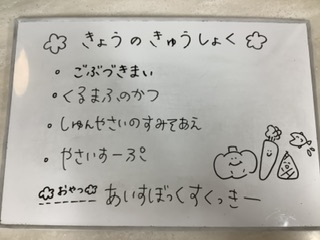 きょうのきゅうしょく
・ごぶづきまい
・くるまふのかつ
・しゅんやさいのすみそあえ
・やさいすーぷ
おやつ あいすぼっくすくっきー